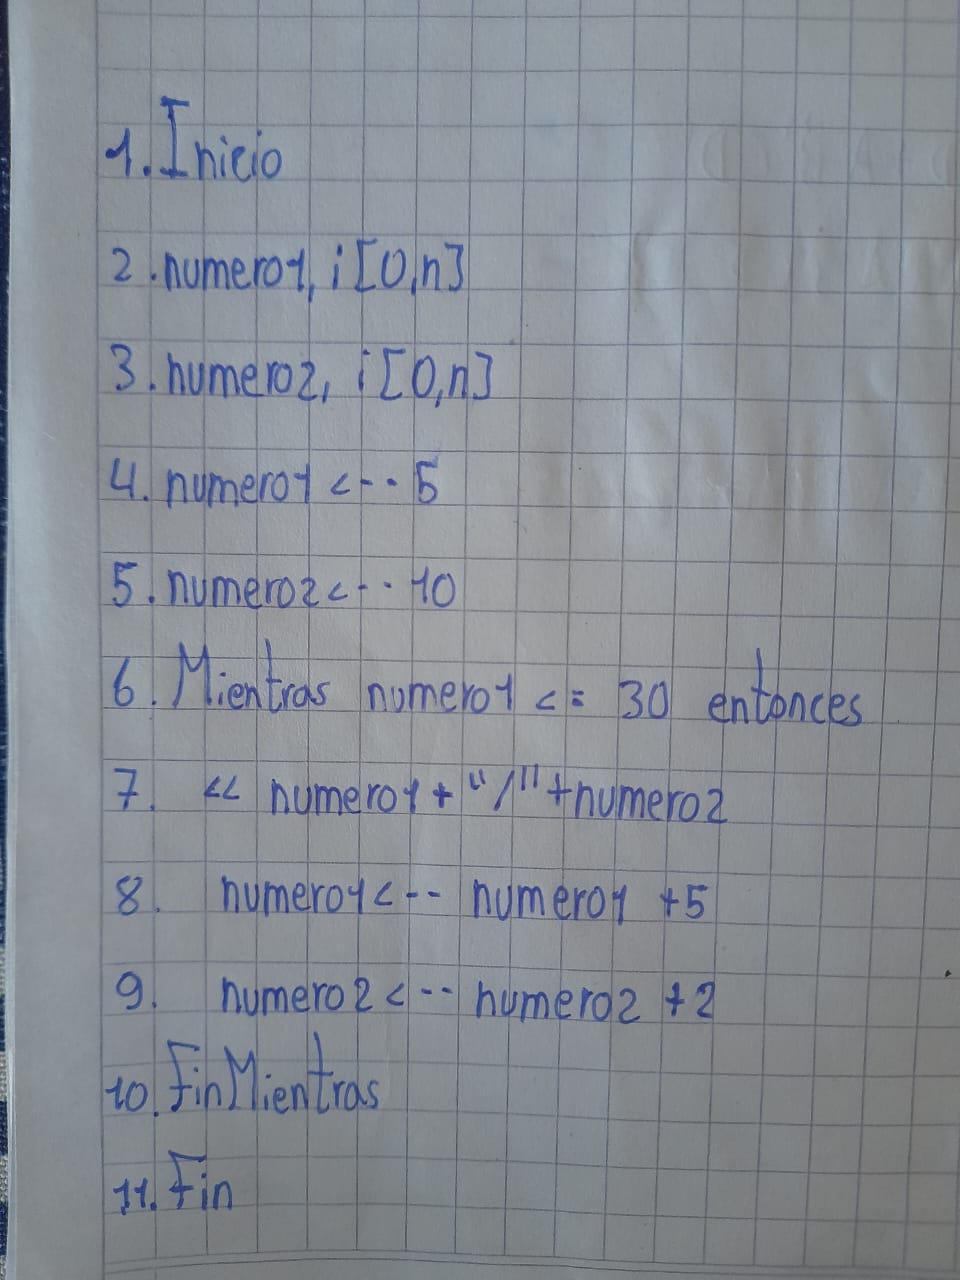 1. Inicio
2. numero1, i [0,n]
3. numero2, i [0,n]
4. numero1 <-- 5
5. numero2 <-- 10
6. Mientras numero1 <= 30 entonces
7. << numero1 + "/" + numero2
8. numero1 <-- numero1 +5
9. numero2 <-- numero2 +2
10. FinMientras
11. Fin